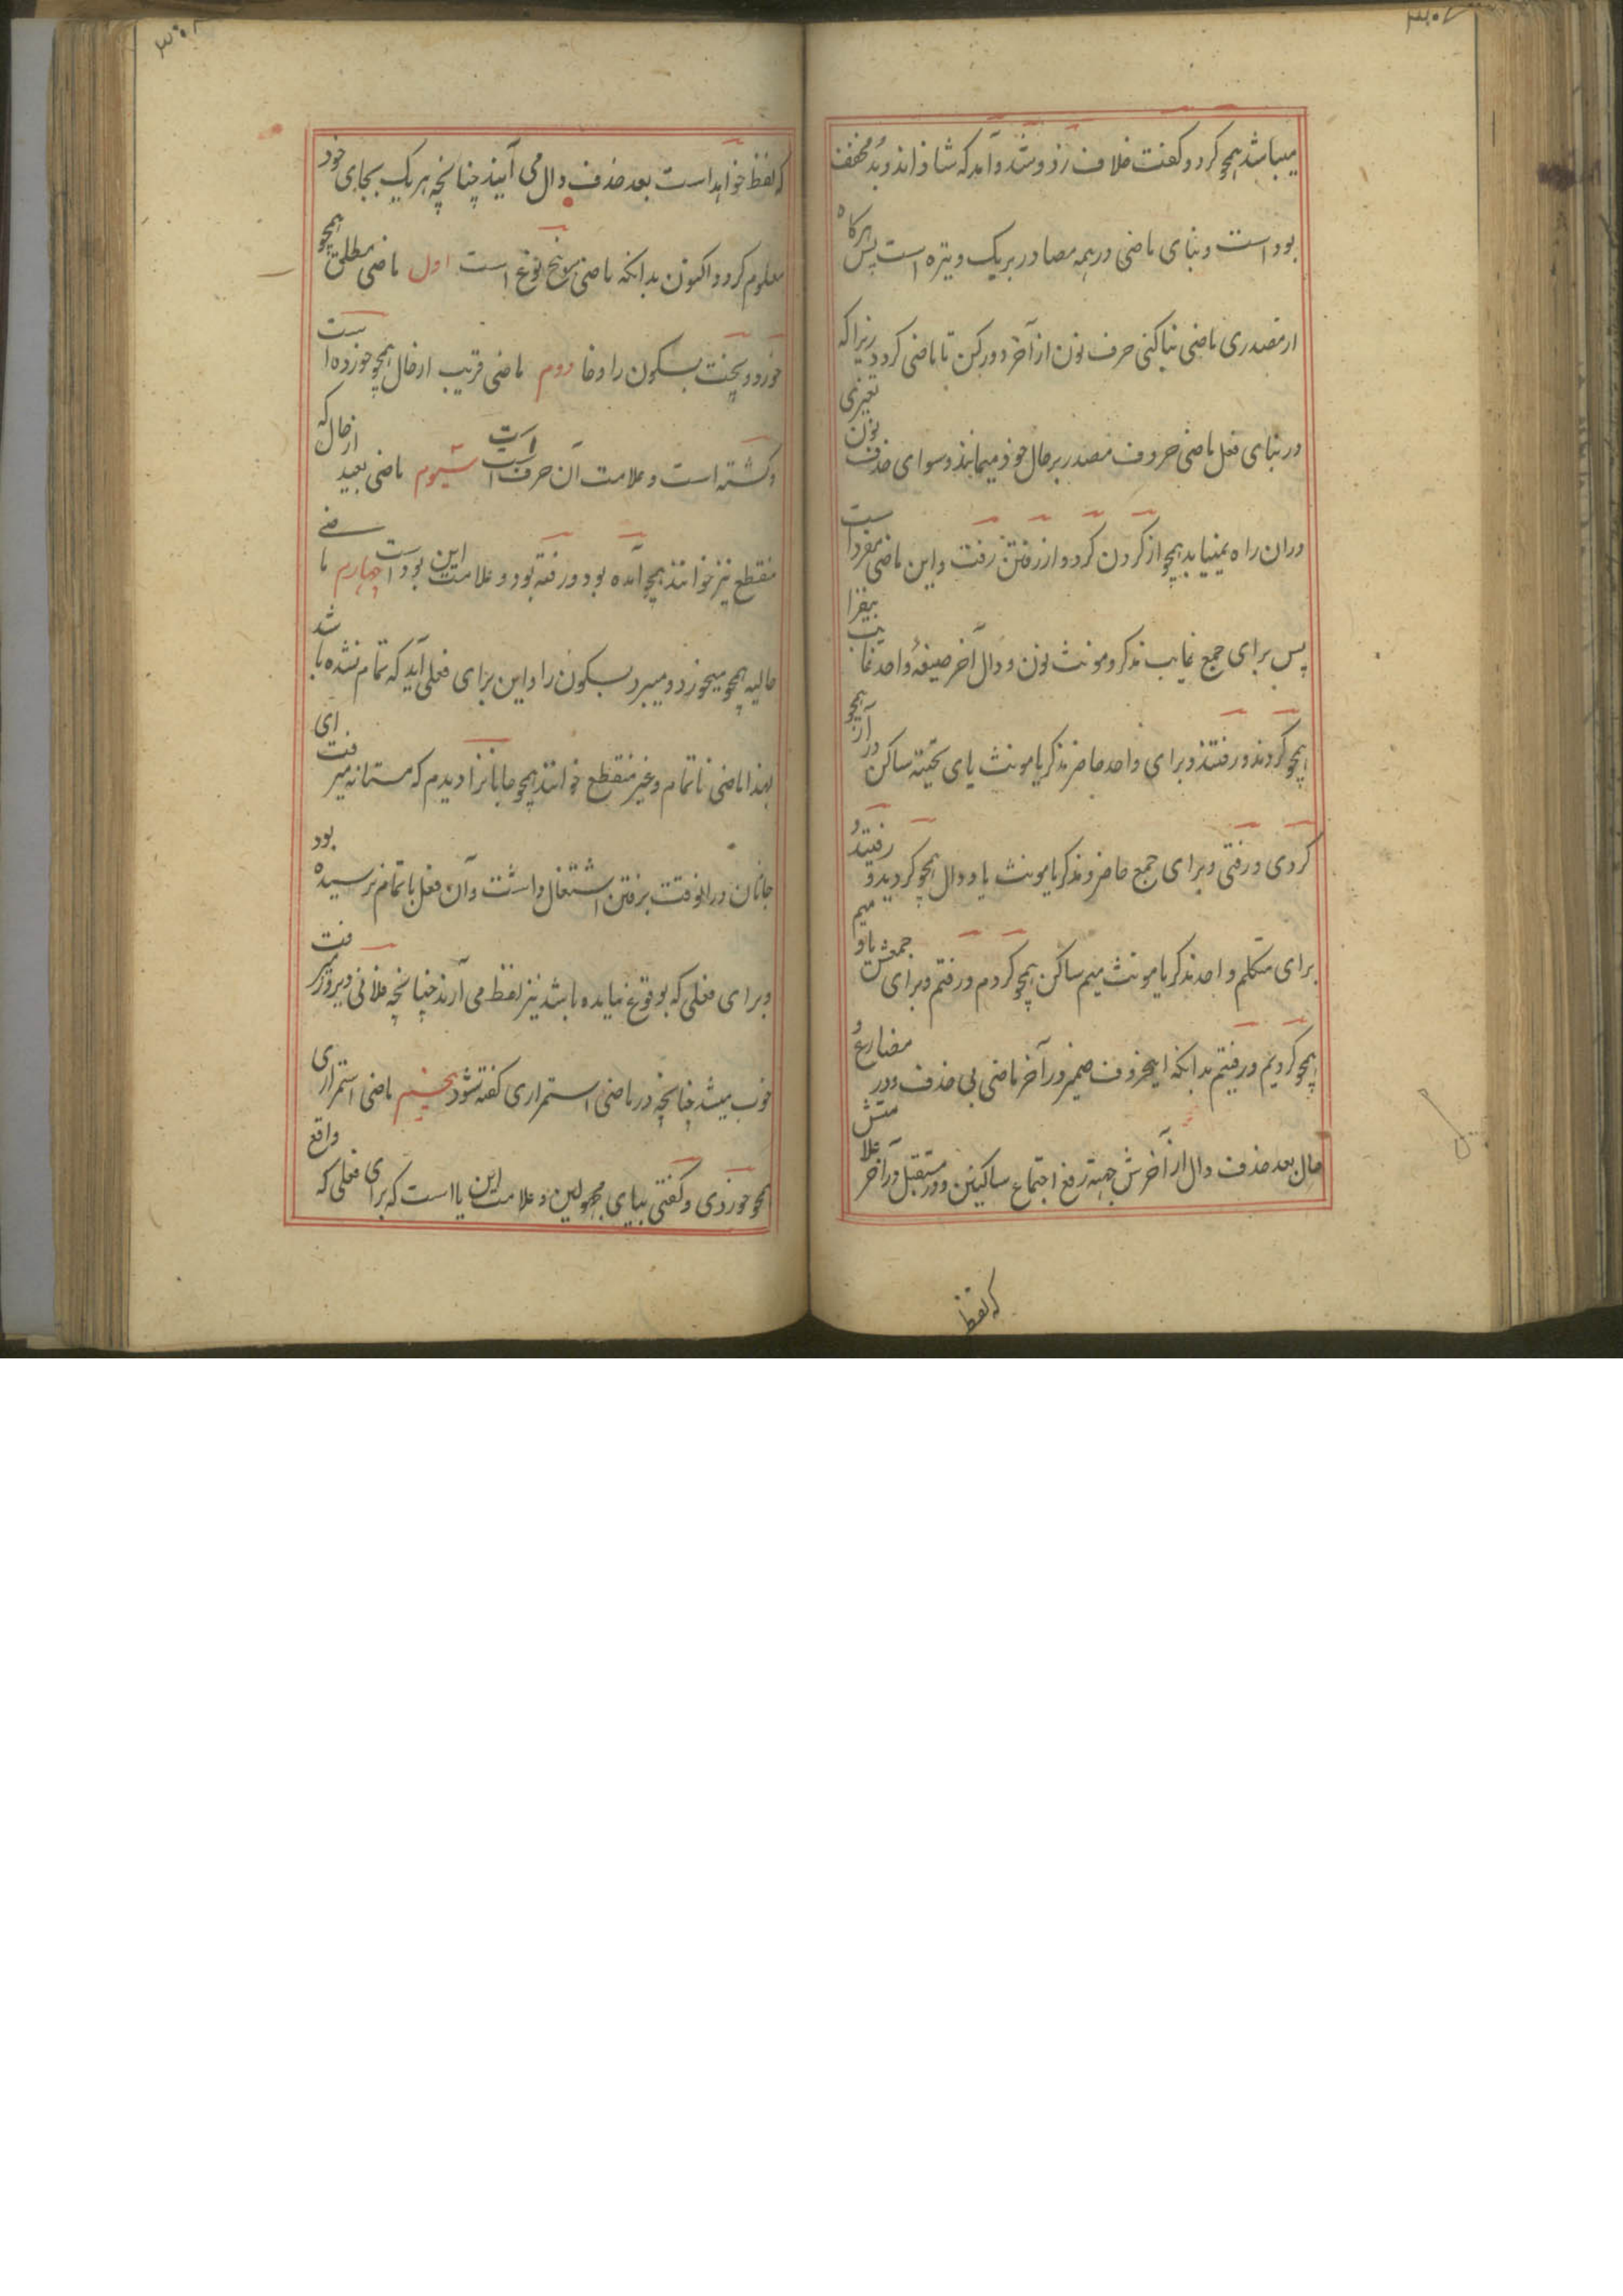 میباشد همچو کرد و کفت خلاف زد و شد و آمد که شاذ اند و بُد مخفف
بود است و بنای ماضی در همه مصادر بر یک وتیره است پس هرکاه
از مصدری ماضی بنا کنی حرف نون از آخر دور کن تا ماضی کردد زیرا که
در بنای فعل ماضی حروف مصدر بر حال خود میمانند و سوای حذف نون تغیری
دران راه نمییابد همچو از کردن کرد و از رفتن رفت و این ماضی مفرد است
پس برای جمع غایب مذکر و مونث نون و دال آخر صیغهٔ واحد غایب بیفزا
همچو کردند و رفتند و برای واحد حاضر مذکر یا مونث یای تحتیه ساکن در آر همچو
کردی و رفتی و برای جمع حاضر مذکر یا مونث یا و دال همچو کردید و رفتید و
برای متکلم واحد مذکر یا مونث میم ساکن همچو کردم و رفتم و برای جمعش یا و میم
همچو کردیم و رفتیم بدانکه اینحروف ضمیر در آخر ماضی بی حذف و در مضارع و
حال بعد حذف دال از آخرش جهة رفع اجتماع ساکنین و در مستقبل در آخر علامتش
که لفظ
که لفظ خواهد است بعد حذف دال می آیند چنانچه هر یک بجای خود
معلوم کردد اکنون بدانکه ماضی بر پنج نوع است اول ماضی مطلق همچو
خورد و پخت بسکون را و خا دوم ماضی قریب از حال همچو خورده است
و کشته است و علامت آن حرف است است سیوم ماضی بعید از حال که
منقطع نیز خوانند همچو آمده بود و رفته بود و علامت این بود است چهارم ماضی
حالیه همچو میخورد و میبرد بسکون را و این برای فعلی آید که تمام نشده باشد
لهذا ماضی ناتمام و غیر منقطع خوانند همچو جانانرا دیدم که مستانه میرفت ای
جانان در انوقت برفتن اشتغال داشت و آن فعل باتمام نرسیده بود
و برای فعلی که بوقوع نیامده باشد نیز لفظ می آرند چنانچه فلانی دیروز میرفت
خوب میشد چنانچه در ماضی استمراری کفته شود پنجم ماضی استمراری
همچو خوردی و کفتی بیای مجهولین و علامت این یا است که برای فعلی که واقع